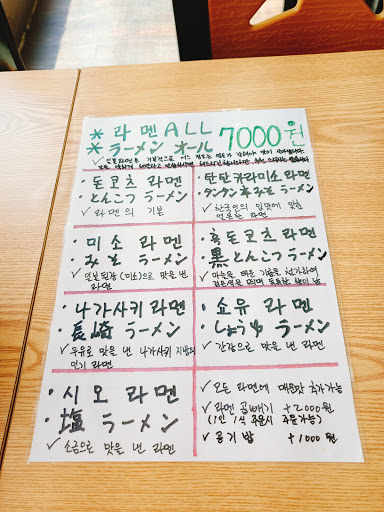 * 라멘 ALL 7000원
* ラーメン オール
• 돈코츠 라멘
• とんこつ ラーメン
✓ 라멘의 기본
• 탄탄카라미소 라멘
• タンタン辛みそ ラーメン
✓ 한국인의 입맛에 맞춘 얼큰한 라멘
• 미소 라멘
• みそ ラーメン
✓ 일본된장(미소)으로 맛을 낸
라멘
• 흑돈코츠 라멘
• 黒とんこつ ラーメン
✓ 마늘을 태운 기름을 첨가하여
• 나가사키 라멘
• 長崎 ラーメン
✓ 우유로 맛을 낸 나가사키 지방의
인기 라멘
• 쇼유 라멘
• しょうゆ ラーメン
✓ 간장으로 맛을 낸 라멘
• 시오 라멘
• 塩 ラーメン
✓ 소금으로 맛을 낸 라멘
✓ 모든 라멘에 매운맛 추가가능
✓ 라멘 곱빼기 +2000원
(1인 1식 주문시 주문가능)
✓ 공기밥 +1000원